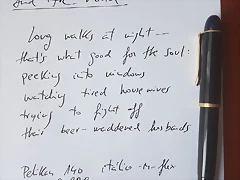 and the world
Long walks at night--
that's what good for the soul:
peeking into windows
watching tired housewives
trying to fight off
their beer-maddened husbands
Pelikan 140 italic-m-flex